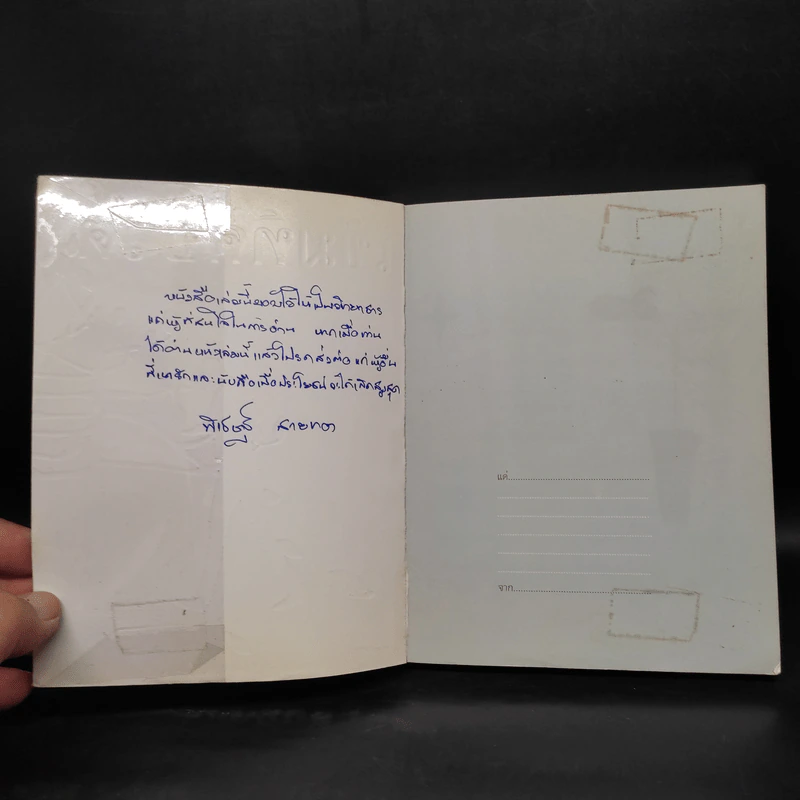 หนังสือเล่มนี้มอบไว้ให้เป็นวิทยาทาน
แด่ผู้ที่สนใจในการอ่าน หากเมื่อท่าน
ได้อ่านหนังสือเล่มนี้แล้วโปรดส่งต่อแก่ผู้อื่น
ที่เคารักและนับถือเพื่อประโยชน์จะได้เกิดสูงสุด
แด่
จาก